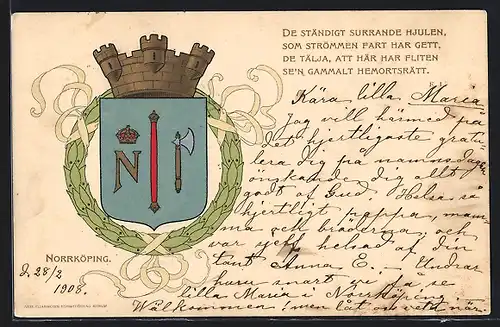 DE STÄNDIGT SURRANDE HJULEN,
SOM STRÖMMEN FART HAR GETT,
DE TÄLJA, ATT HÄR HAR FLITEN
SE'N GAMMALT HEMORTSRÄTT.
N
Kära lilla Maria
Jag vill härmed på
det hjertligaste gratu-
lera dig på namnsdagen
önskande dig allt
godt af Gud. Helsa så
hjertligt pappa, mam-
ma och bröderna, och
var sjelf helsad af din
tant Anna E. Undrar
huru snart jag får se
lilla Maria i Norrköping.
Välkommen! men låt oss veta när
NORRKÖPING.
d. 28/2
1908.